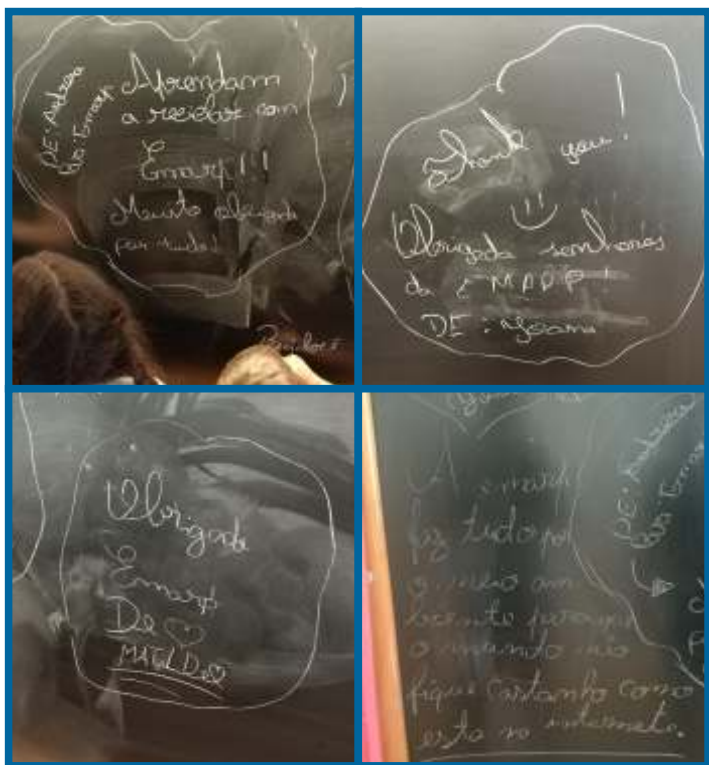 DE: Andreia
Aprendam
a reciclar com
a
Emarp!!!
Muito obrigada
por tudo!
Thank you!
Obrigada senhoras
da EMARP!
DE:
Obrigada
Emarp
De ♡
A emarp
faz tudo por
o meio am-
biente para que
o mundo não
fique castanho como
esta no internete.
DE: Andreia